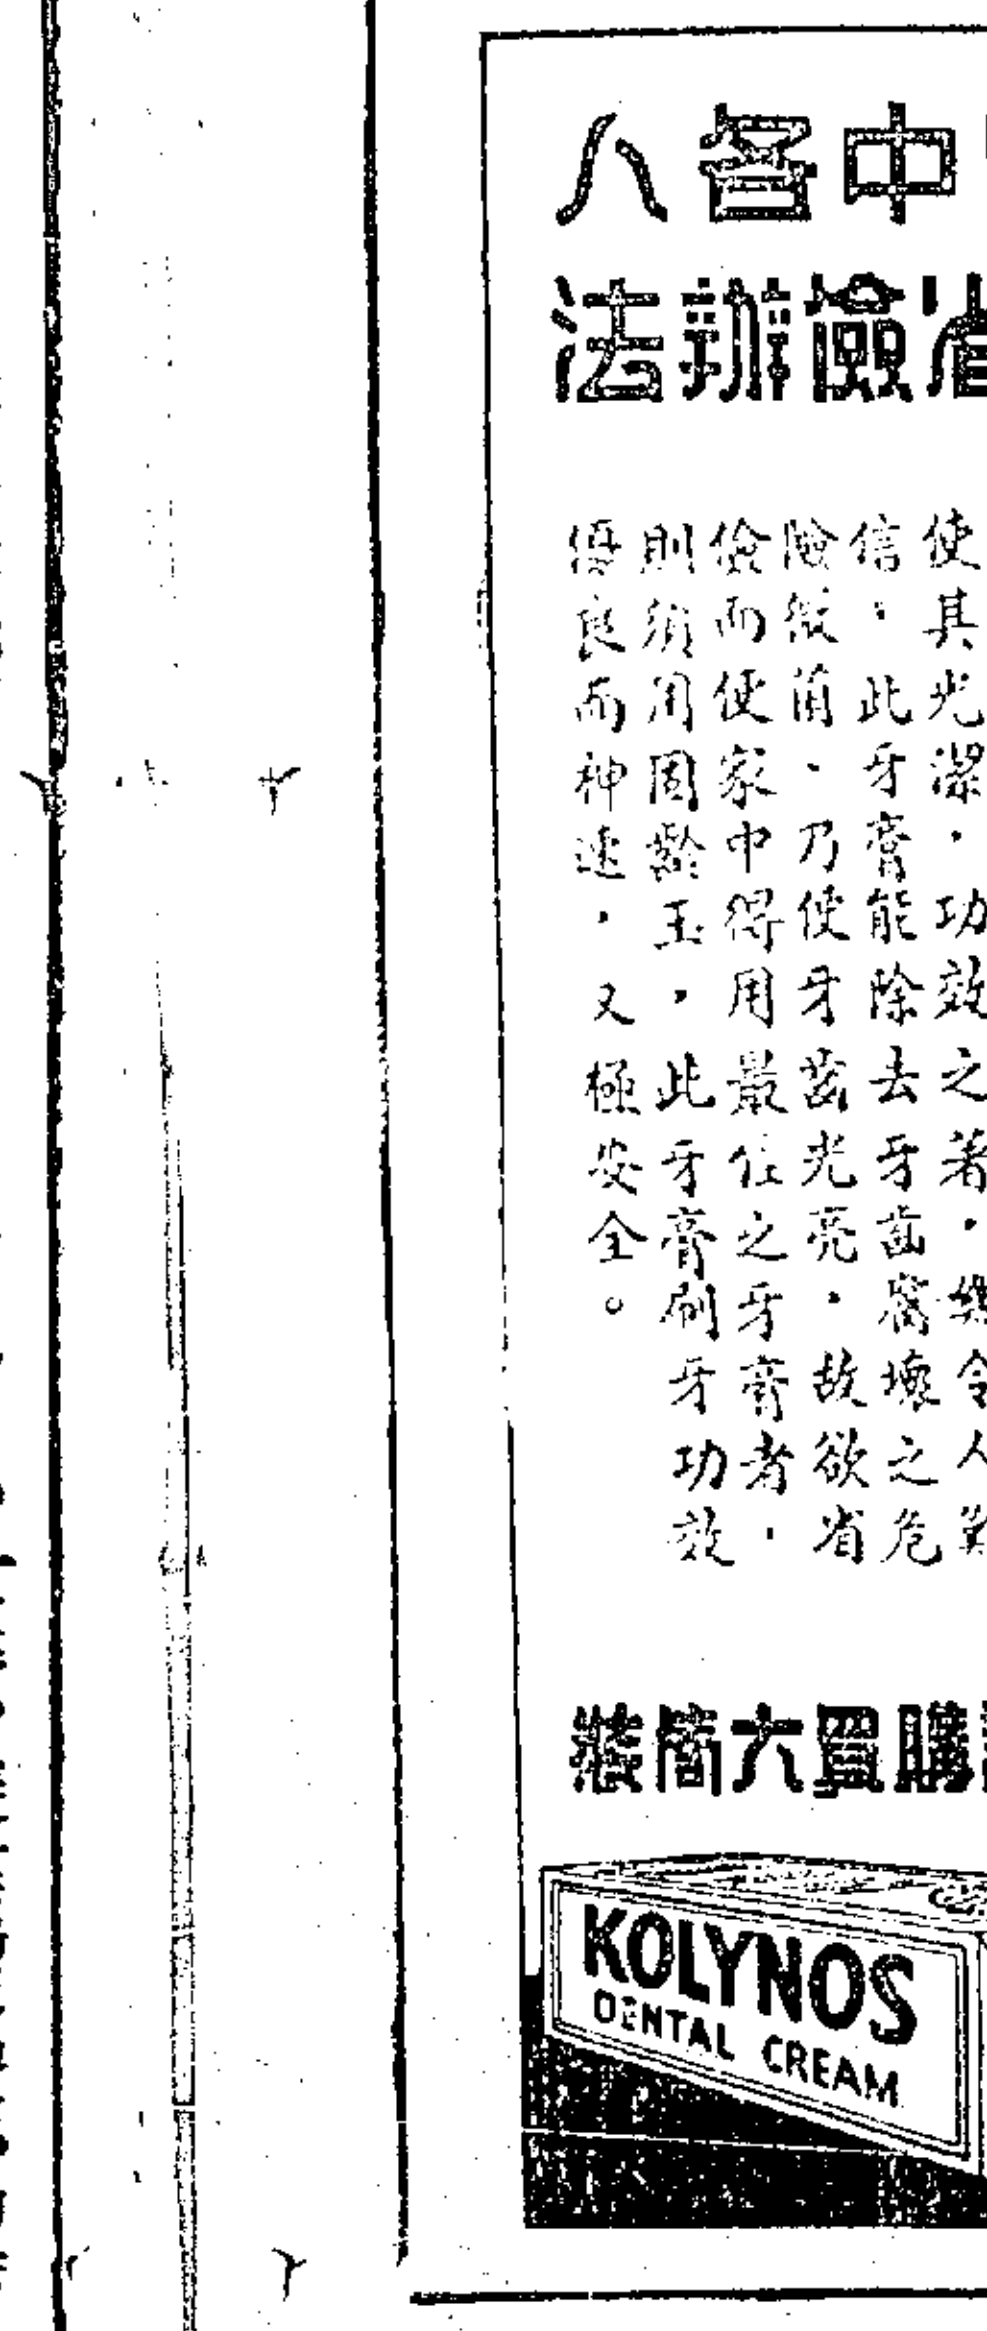 中各人
省儉辦法
使其光潔，功效之著，
信，此牙膏能除去牙齒腐壞之危
險微菌、乃使牙齒光亮，故欲省
儉而使家中得用最佳之牙膏者，
則須用固齡玉，此牙膏刷牙功效
優良而神速，又極安全。
購買六筒裝
KOLYNOS
DENTAL CREAM